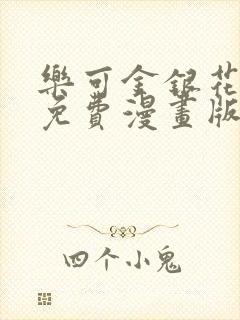 樂可金銀花
免費漫畫版
四个小鬼